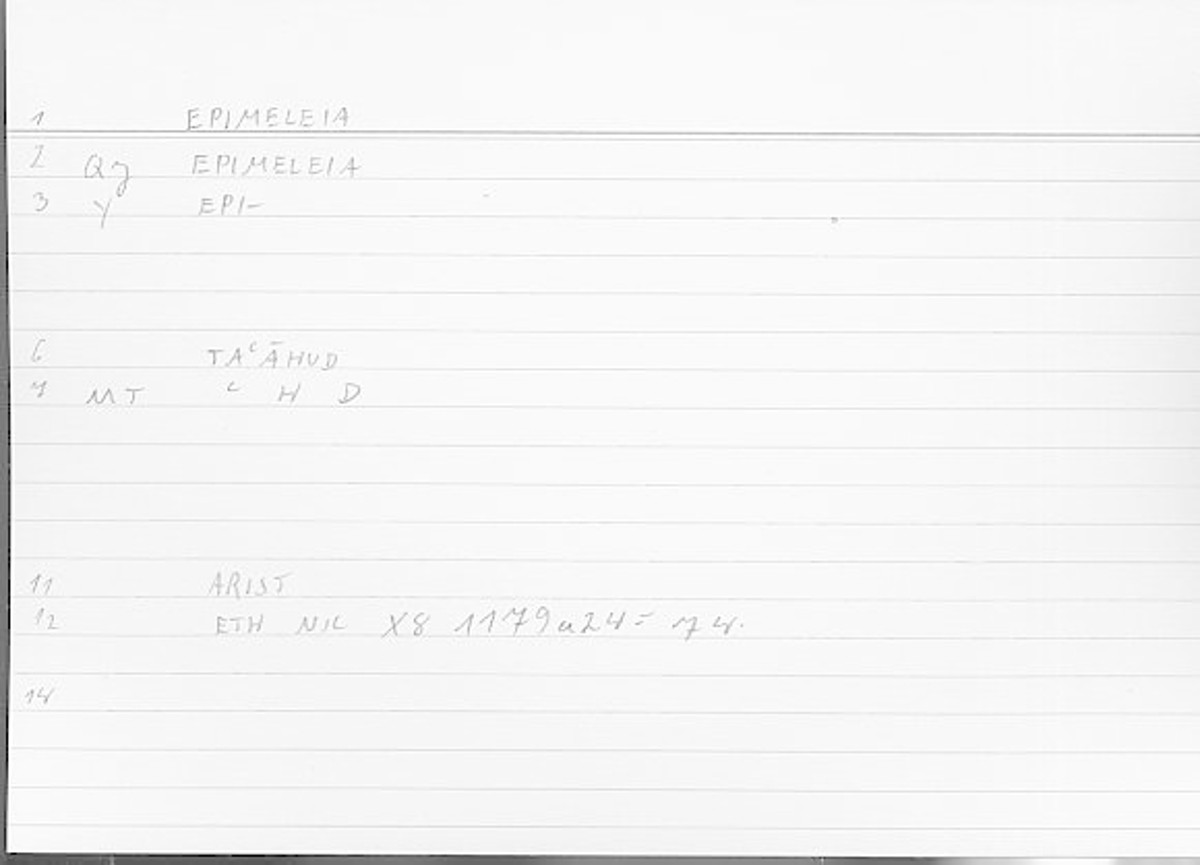 1 EPIMELEIA
2 Qγ EPIMELEIA
3 Y EPI-
6 TAᶜĀHUD
7 MT ᶜ H D
11 ARIST
12 ETH NIC X8 1179a24 =
14